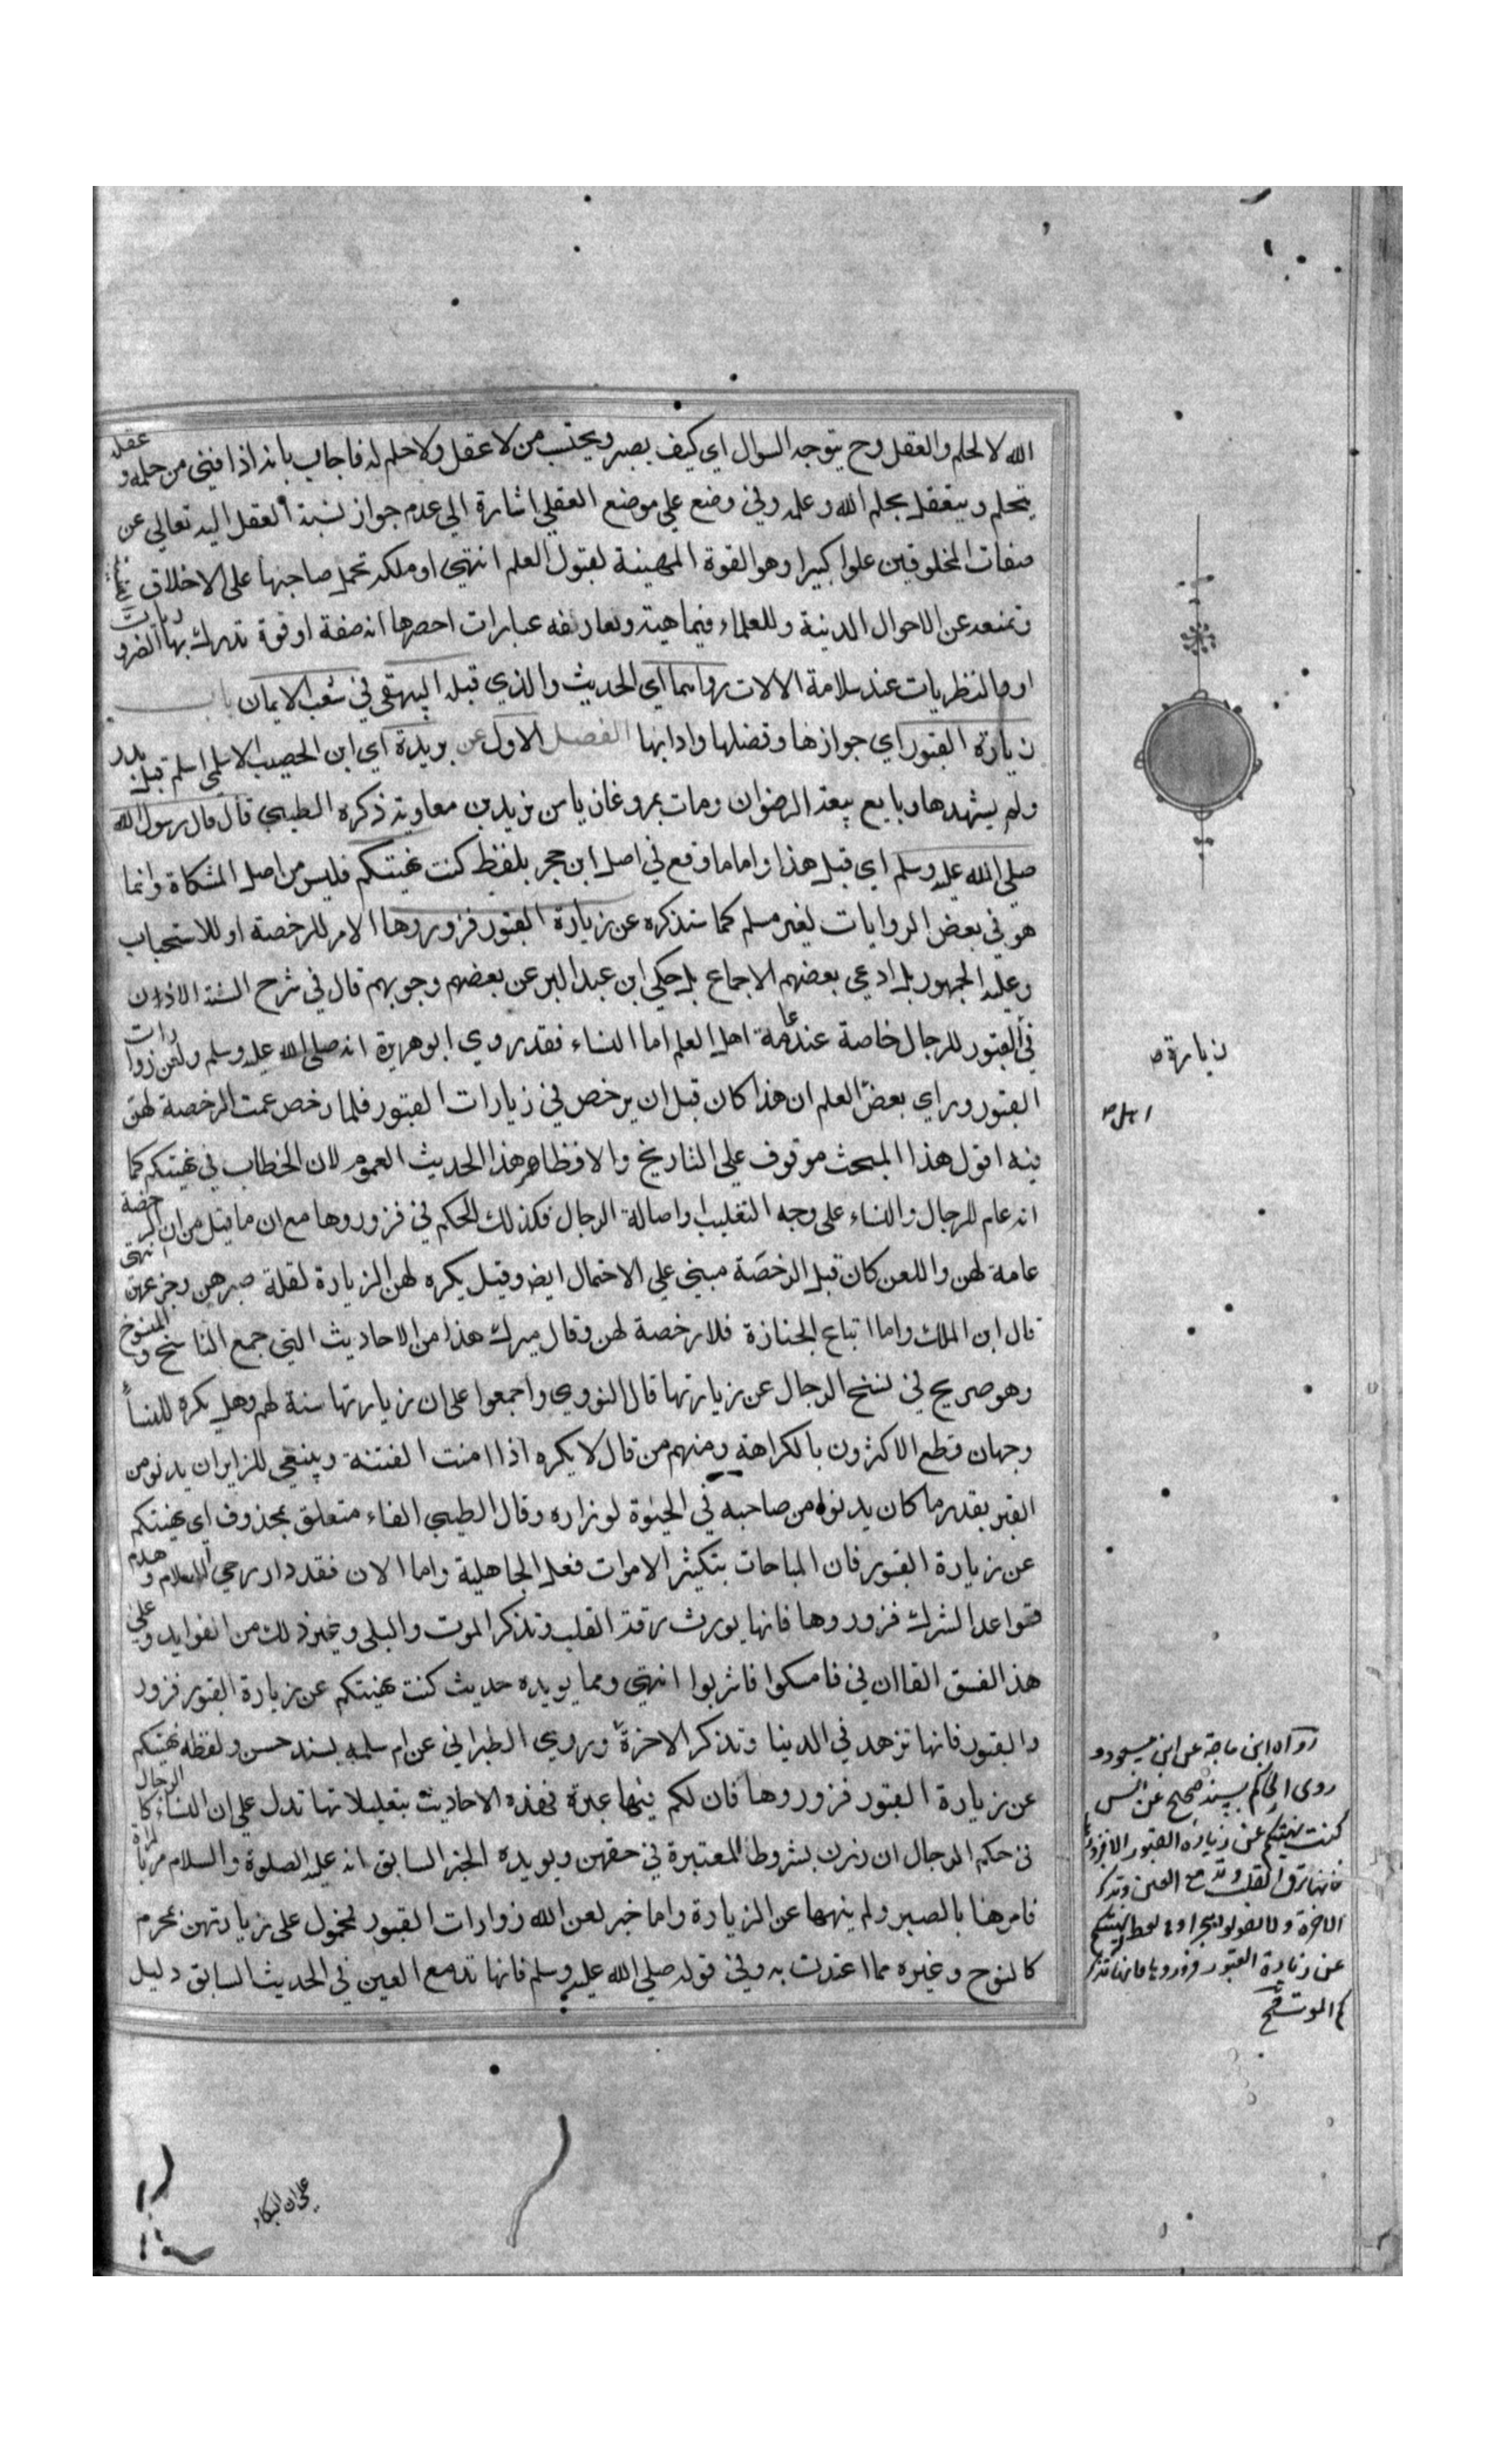 الله لا لحلم والعقل وح يتوجه السوال اي كيف يصبر ويحتسب من لا عقل ولا حلم له فاجاب بانه اذا فني من حلمه و عقله
يتحلم ويتعقل بحلم الله وعلمه وفي وضع علي موضع العقلي اشارة الي عدم جواز نسبة العقل اليه تعالي عن
صفات المخلوقين علوا كبيرا وهو القوة المهينة لقبول العلم انتهي او ملكه تحمل صاحبها علي الاخلاق
وتمنعه عن الاحوال الدنية وللعلماء فيماهيته وتعاريفه عبارات احصرها انه صفة او قوة تدرك بها الضروريات
والنظريات عند سلامة الالات رواهما اي الحديث والذي قبله البيهقي في شعب الايمان باب
زيارة القبور اي جوازها وفضلها وادابها الفصل الاول عن بريدة اي ابن الحصيب الاسلمي اسلم قبل بدر
ولم يشهدها وبايع بيعة الرضوان ومات بمرو غازيا من يزيد بن معاوية ذكره الطيبي قال قال رسول الله
صلي الله عليه وسلم اي قبل هذا واما ما وقع في اصل ابن حجر بلفظ كنت نهيتكم فليس من اصل المشكاة وانما
هو في بعض الروايات لغير مسلم كما سنذكره عن زيارة القبور فزوروها الامر للرخصة او للاستحباب
وعليه الجمهور بل ادعي بعضهم الاجماع بل حكي ابن عبد البر عن بعضهم وجوبهم قال في شرح السنة الاذن
في القبور للرجال خاصة عند عامة اهل العلم اما النساء فقد روي ابو هريرة انه صلي الله عليه وسلم ولعن زوارات
القبور وراي بعض العلم ان هذا كان قبل ان يرخص في زيارات القبور فلما رخص عمت الرخصة لهن
فيه اقول هذا المبحث موقوف علي التاريخ والا فظاهر هذا الحديث العموم لان الخطاب في نهيتكم كما
انه عام للرجال والنساء علي وجه التغليب واصالة الرجال فكذلك الحكم في فزوروها مع ان ما قيل من ان الرخصة
عامة لهن واللعن كان قبل الرخصة مبني علي الاحتمال ايض وقيل يكره لهن الزيارة لقلة صبرهن وجزعهن انتهى
قال ابن الملك واما اتباع الجنازة فلا رخصة لهن وقال ميرك هذا من الاحاديث التي جمع الناسخ والمنسوخ
وهو صريح في نسخ الرجال عن زيارتها قال النووي واجمعوا علي ان زيارتها سنة لهم وهل يكره للنساء
وجهان قطع الاكثرون بالكراهة ومنهم من قال لا يكره اذا امنت الفتنة وينبغي للزاير ان يدنو من
القبر بقدر ما كان يدنوا من صاحبه في الحيوة لو زاره وقال الطيبي الفاء متعلق بمحذوف اي نهيتكم
عن زيارة القبور فان المباحات بتكثير الاموات فعل الجاهلية واما الان فقد دار رحي الاسلام وهدم
قواعد الشرك فزوروها فانها يورث رقة القلب وتذكر الموت والبلي وغير ذلك من الفوايد وعلي
هذا الفسق الفاان في فامسكوا فاشربوا انتهي ومما يويده حديث كنت نهيتكم عن زيارة القبور فزور
والقبور فانها تزهد في الدينا وتذكر الاخرة وروي الطبراني عن ام سلمة بسند حسن ولفظه نهيتكم
عن زيارة القبور فزوروها فان لكم فيها عبرة فهذه الاحاديث بتعليلاتها تدل علي ان النساء كالرجال
في حكم الرجال ان زرن بشروط المعتبرة في حقهن ويويده الخبر السابق انه عليه الصلوة والسلام مر بامراة
فامرها بالصبر ولم ينهها عن الزيارة واما خبر لعن الله زوارات القبور فمحمول علي زيارتهن لمحرم
كالنوح وغيره مما اعتدت به وفي قوله صلي الله عليه وسلم فانها تدمع العين في الحديث السابق دليل
علي ان البكاء
زيارة ص
اهل ص
رواه ابن ماجة عن ابن مسعود و
روى الحاكم بسند صحيح عن انس
كنت نهيتكم عن زيارة القبور الا فزوروها
فانها ترق القلب وتدمع العين وتذكر
الاخرة ولا تقولوا هجرا نهيتكم
عن زيارة القبور فزوروها فانها تذكر
كم الموت صح